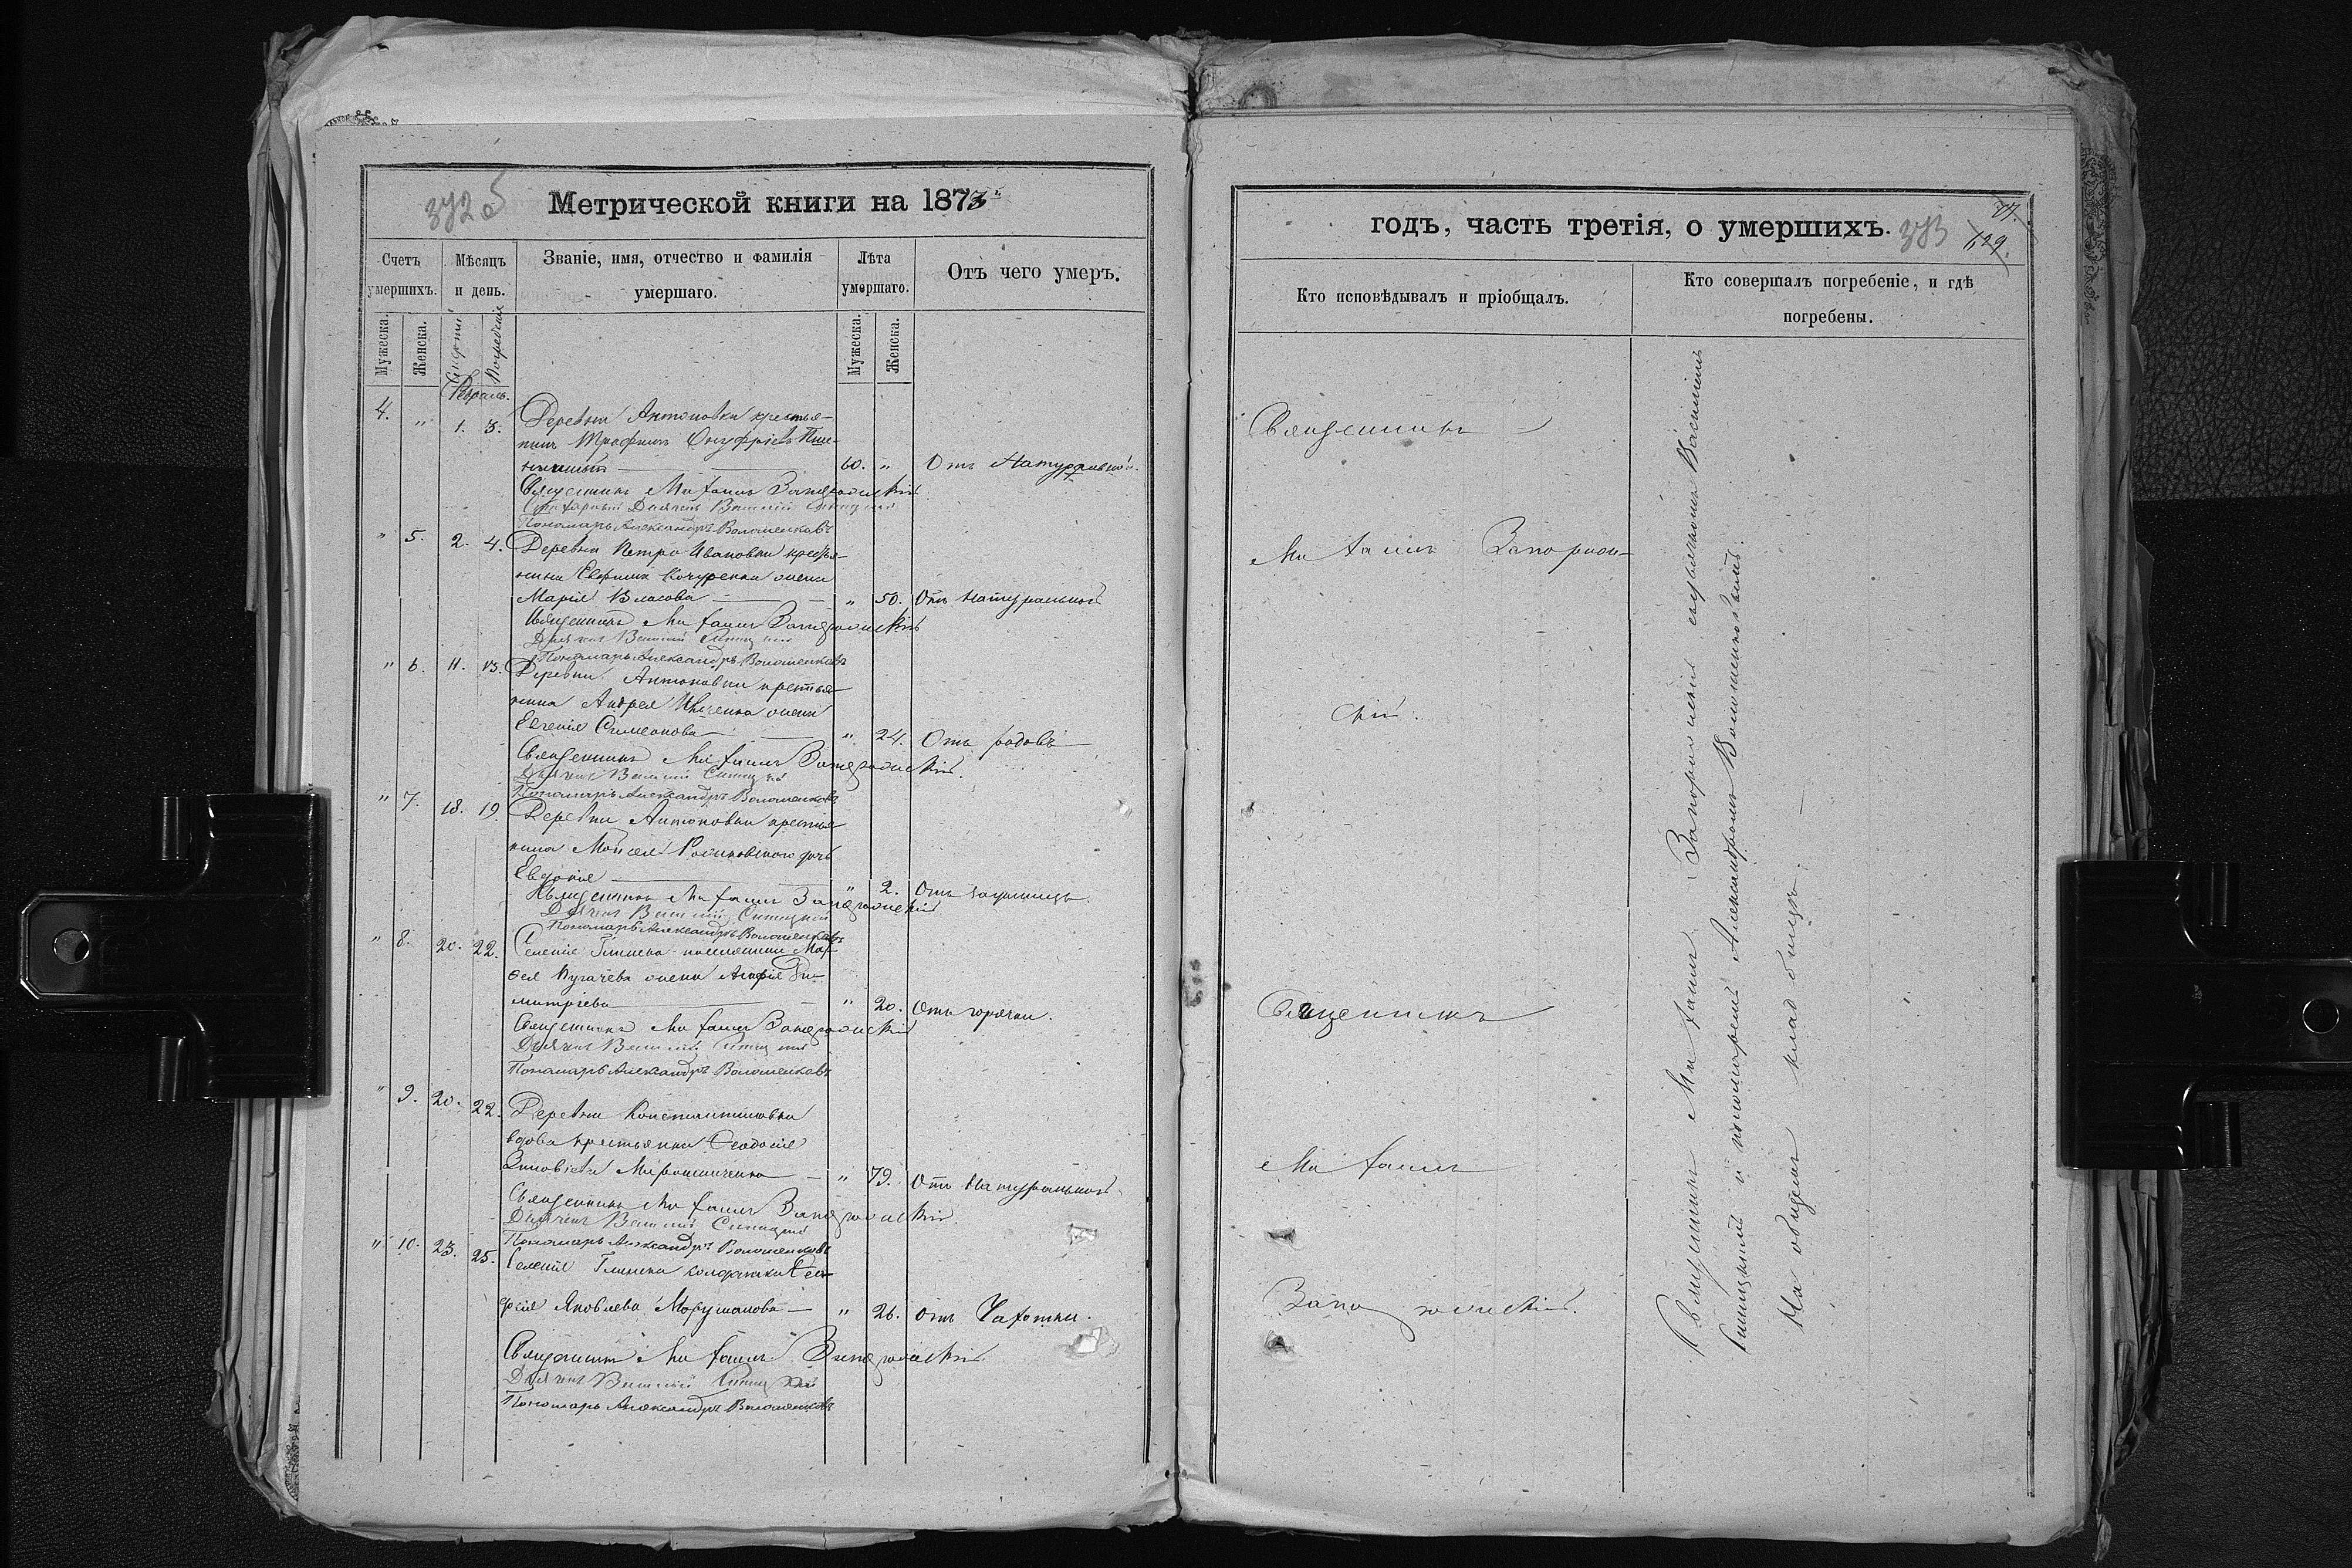 372
5
Метрической книги на 1873
Счетъ умершихъ.
Мѣсяцъ и день.
Званіе, имя, отчество и фамилія умершаго.
Лѣта умершаго.
Отъ чего умеръ.
Мужеска.
Женска.
Смерти
Погребенія
Мужеска.
Женска.
Февраль.
4. " 1. 3. Деревни Антоновки крестья-
нинъ Трофимъ Онуфріевъ
60. " Отъ Натуральной.
Священникъ Михаилъ Запорожскій
Дьячекъ Василій Синицкій
Пономарь Александръ Волошенковъ
" 5. 2. 4. Деревни Петро Ивановки крестья-
нина Евфимія Кочуренка жена
Марія Власова " 50. Отъ Натуральной
Священникъ Михаилъ Запорожскій
Дьячекъ Василій Синицкій
Пономарь Александръ Волошенковъ
" 6. 11. 13. Деревни Антоновки крестья-
нина Андрея Ивченка жена
Евгенія Симеонова " 24. Отъ родовъ
Священникъ Михаилъ Запорожскій.
Дьячекъ Василій Синицкій
Пономарь Александръ Волошенковъ
" 7. 18. 19. Деревни Антоновки крестья
нина Моисея дочь
Евдокія " 2. Отъ
Священникъ Михаилъ Запорожскій
Дьячекъ Василій Синицкій
Пономарь Александръ Волошенковъ
" 8. 20. 22. Селенія Глинска
Пугачева жена Агафія Ди-
митріева " 20. Отъ горячки.
Священникъ Михаилъ Запорожскій
Дьячекъ Василій Синицкій
Пономарь Александръ Волошенковъ
" 9. 20. 22. Деревни Константиновки
вдова крестьянка Феодосія
Зиновіева Мирошниченко " 79. Отъ Натуральной.
Священникъ Михаилъ Запорожскій.
Дьячекъ Василій Синицкій
Пономарь Александръ Волошенковъ
" 10. 23. 25. Селенія Глинска солдатка
фія Яковлева " 26. отъ Чахотки.
Священникъ Михаилъ Запорожскій.
Дьячекъ Василій Синицкій
Пономарь Александръ Волошенковъ
годъ, часть третія, о умершихъ.
373
129.
Кто исповѣдывалъ и пріобщалъ.
Кто совершалъ погребеніе, и гдѣ погребены.
Священникъ
Михаилъ Запорож-
скій.
Священникъ
Михаилъ
Запорожскій.
Священникъ Михаилъ Запорожскій Василіемъ
Синицкимъ и пономаремъ Александромъ Волошенковымъ.
На общемъ кладбищѣ.